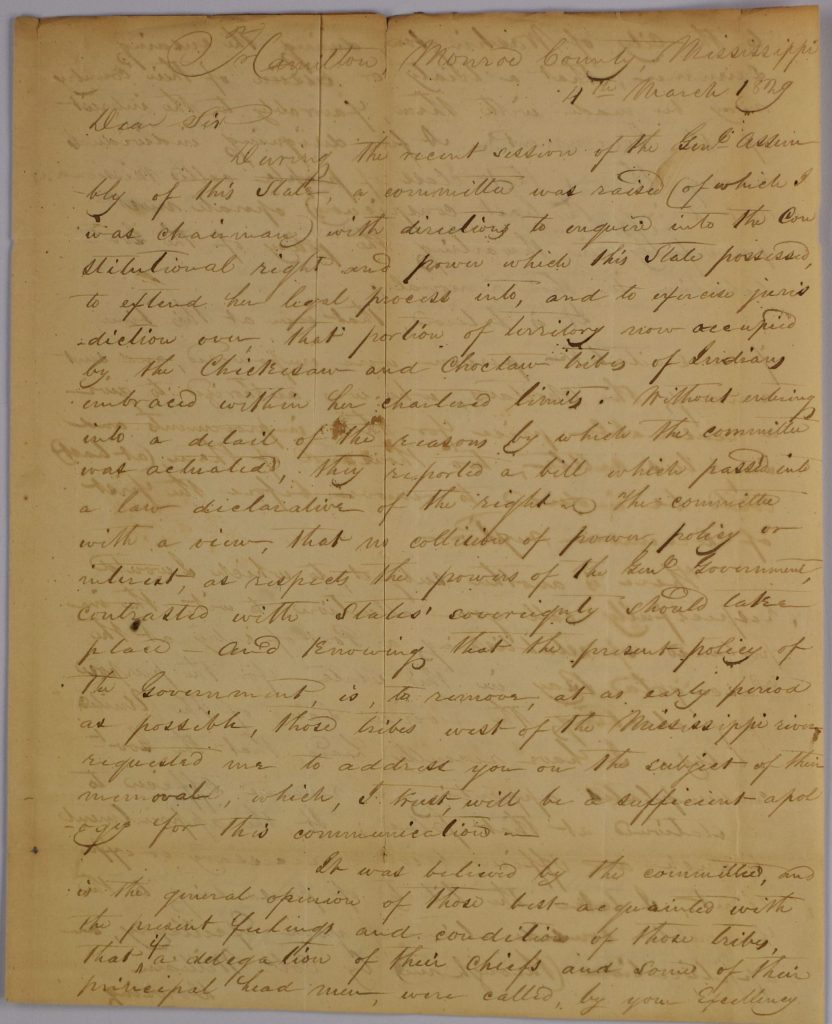 Hamilton, Monroe County, Mississippi
4th March 1829
Dear Sir
During the recent session of the Genl Assem
bly of this State, a committee was raised (of which I
was chairman) with directions to enquire into the Con
stitutional right and power which this State possessed,
to extend her legal process into, and to exercise juris
-diction over that portion of territory now occupied
by the Chickesaw and Choctaw tribes of Indians
embraced within her chartered limits. Without entering
into a detail of the reasons by which the committee
was actuated, they reported a bill which passed into
a law declarative of the right - The committee
with a view, that no collision of power, policy or
interest, as respects the powers of the Genl Government,
contrasted with States' sovereignty should take
place - and Knowing that the present policy of
the Government, is, to remove, at as early period
as possible, those tribes west of the Mississippi river
requested me to address you on the subject of their
removal, which, I trust, will be a sufficient apol
-ogy for this communication -
It was believed by the committee, and
is the general opinion of those best acquainted with
the present feelings and condition of those tribes,
that if a delegation of their chiefs and some of their
principal head men, were called, by your Excellency